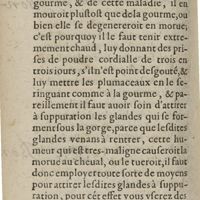 gourme, & de cette maladie, il en
mouroit plustost que de la gourme, ou
bien elle se degenereroit en morue;
c'est pourquoy il le faut tenir extre-
mement chaud, luy donnant des pri-
ses de poudre cordialle de trois en
trois jours, s'il n'est point desgousté, &
luy mettre les plumaceaux en le se-
ringuant comme à la gourme, & pa-
reillement il faut avoir soin d'attirer
à suppuration les glandes qui se for-
ment sous la gorge, parce que lesdites
glandes venans à rentrer, cette hu-
meur qui est tres-maligne causeroit la
morue au cheual, ou le tueroit, il faut
donc employer toute sorte de moyens
pour attirer lesdites glandes à suppu-
ration, pour cét effet vous vserez des